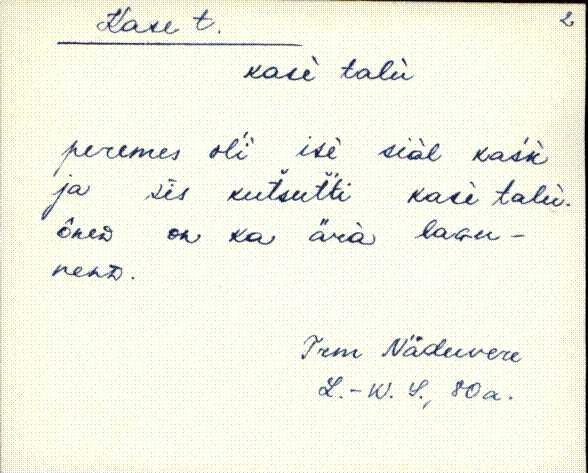 Kase t. 2
kasè talù
peremes ol'i isè siäl kaśk
ja sīs kutsutti kasè talù.
ôneD on ka ärà laGu-
nenD.
Trm Näduvere
L.-W. S., 80a.